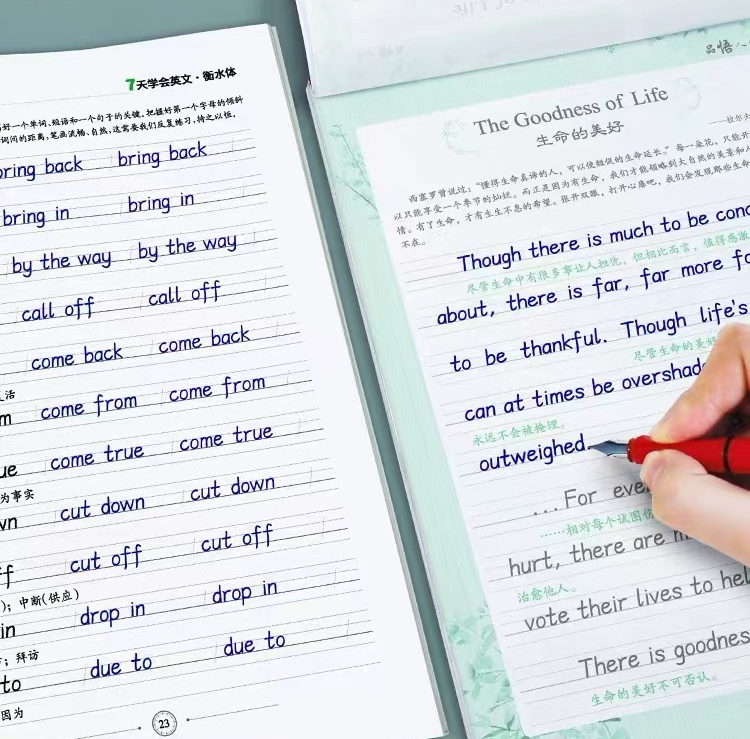 7天学会英文·衡水体
好一个单词、短语和一个句子的关键,把握好第一个字母的倾斜
词间的距离,笔画流畅、自然,这需要我们反复练习,持之以恒。
bring back bring back
bring in bring in
by the way by the way
call off call off
come back come back
活
come from come from
come true come true
为事实
cut down cut down
cut off cut off
);中断(供应)
in drop in drop in
;拜访
to due to due to
因为
23
品悟人
The Goodness of Life
生命的美好
西塞罗曾说过:“懂得生命真谛的人,可以使短促的生命延长。”每一朵花,只能开
以只能享受一个季节的灿烂。而正是因为有生命,我们才能领略到大自然的美景和人
情。有了生命,才有生生不息的希望。张开双眼,打开心扉吧,我们会发现那些生命
不在。
Though there is much to be
尽管生命中有很多事让人担忧,但相比而言,值得感激
about, there is far, far more
to be thankful. Though life's
尽管生命的美好
can at times be
永远不会被掩埋。
outweighed.
...For
......相对每个试图伤
hurt, there are
治愈他人。
vote their lives to
There is
生命的美好不可否认。